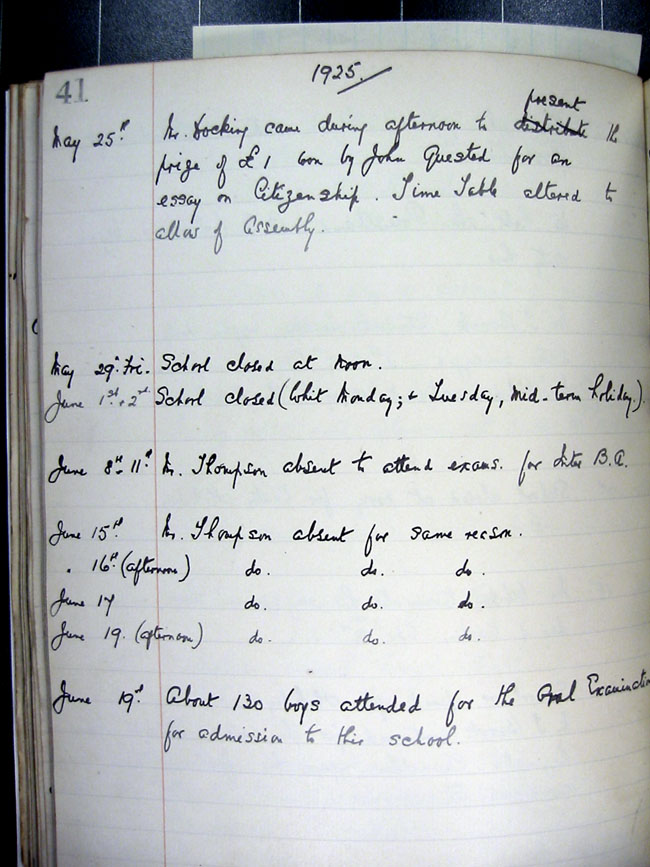 41
1925.
present
May 25th Mr. Hocking came during afternoon to distribute the
prize of £1 won by John Quested for an
essay on Citizenship. Time Table altered to
allow of Assembly.
May 29th Fri. School closed at Noon.
June 1st & 2nd School closed (Whit Monday; & Tuesday, Mid-term holiday.)
June 8th - 11th Mr. Thompson absent to attend exams. for Inter B.A.
June 15th Mr. Thompson absent for same reason.
" 16th (afternoon) do. do. do.
June 17 do. do. do.
June 19. (afternoon) do. do. do.
June 19th About 130 boys attended for the Oral Examination
for admission to this school.